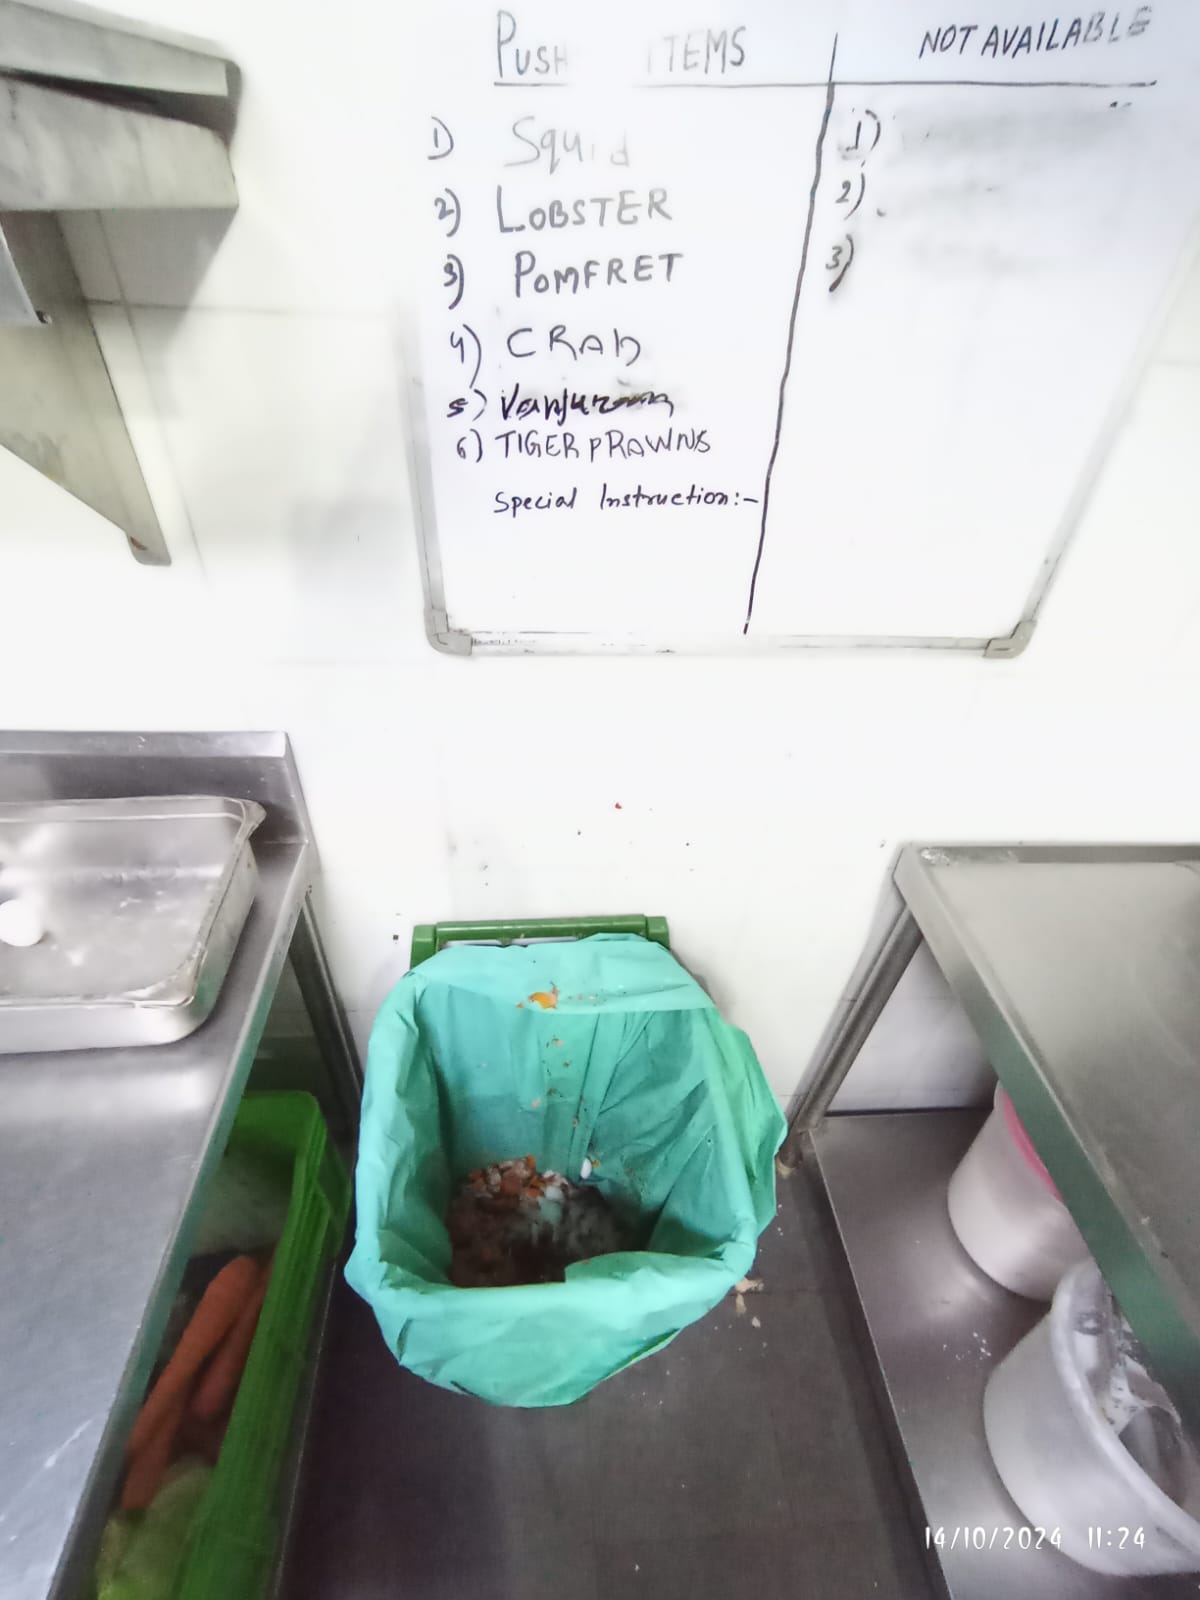 PUSH ITEMS
1) Squid
2) LOBSTER
3) POMFRET
4) CRAb
5) Vanjuram
6) TIGER PRAWNS
Special Instruction:-
NOT AVAILABLE
1)
2)
3)
14/10/2024 11:24